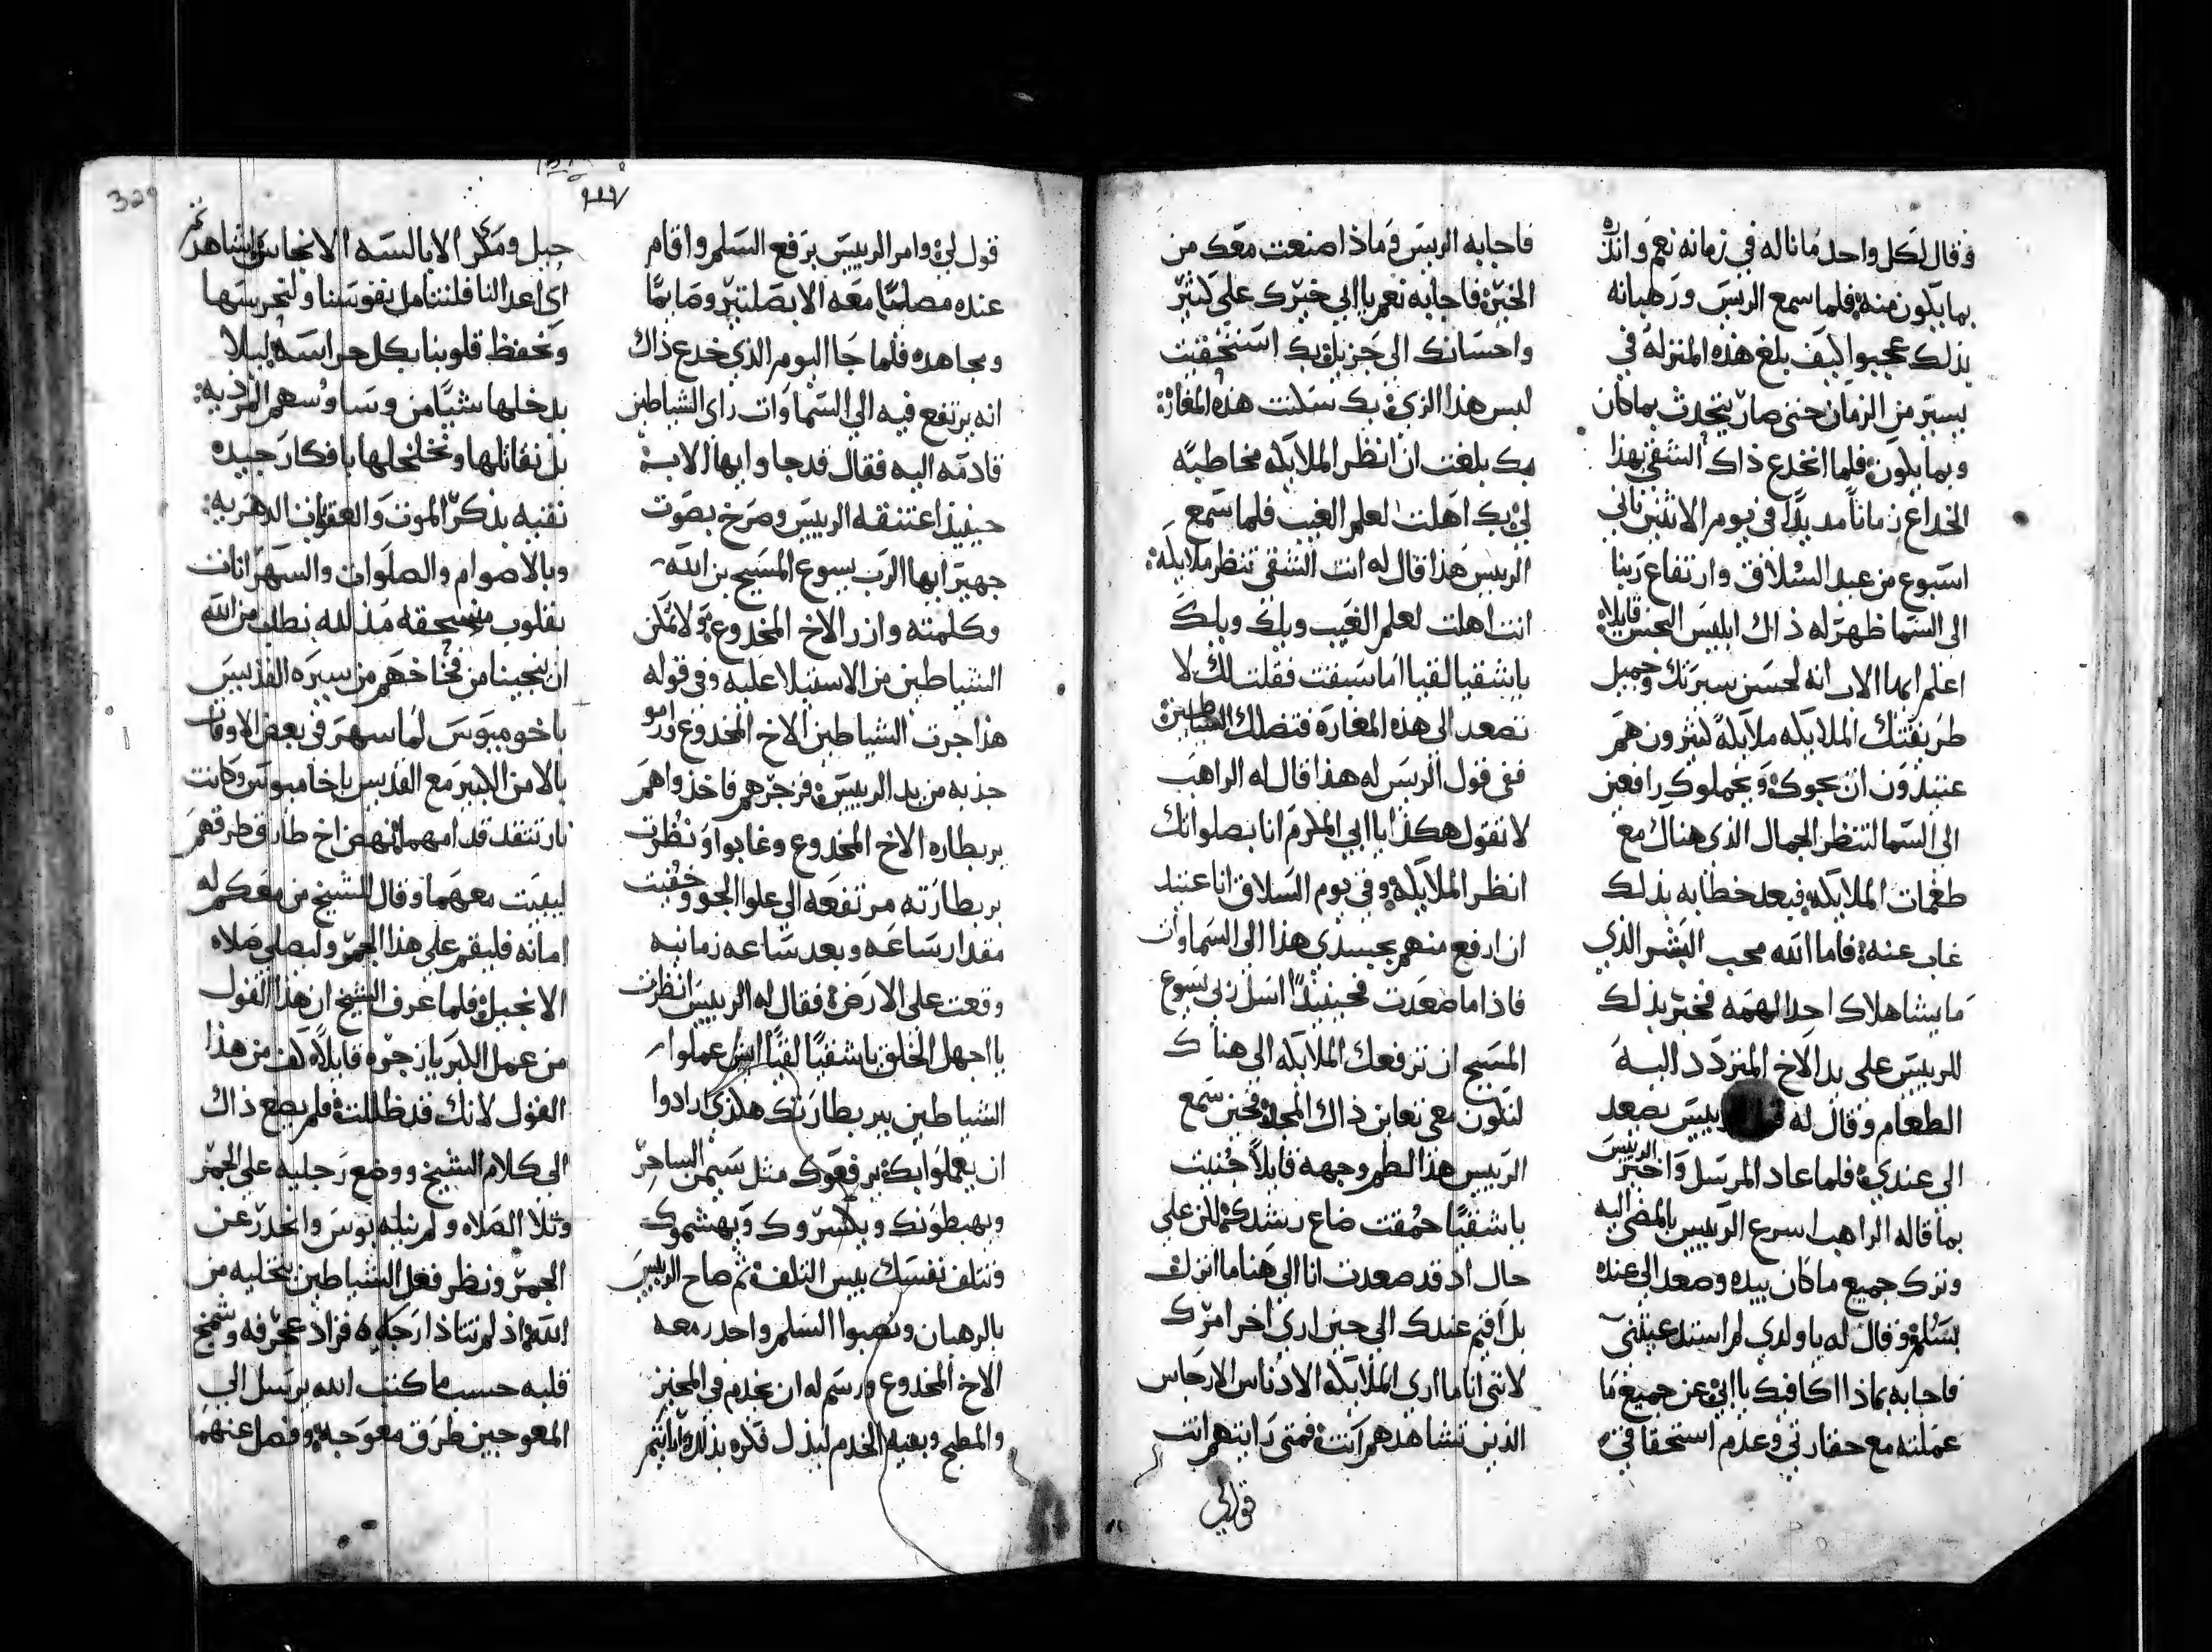 وقال لكل واحد ما ناله في زمانه نعم وانذره
بما يكون منه فلما سمع الريس ورهبانه
بذلك عجبوا كيف بلغ هذه المنزلة في
يسير من الزمان حتى صار يتحدث بما كان
وبما يكون فلما انخدع ذاك الشقي بهذا
الخداع زماناً مديداً في يوم الاثنين ثاني
اسبوع من عيد السلاق وارتفاع ربنا
الى السما ظهر له ذاك ابليس النجس قايلاً
اعلم ايها الاب انه لحسن سيرتك وجميل
طريقتك الملايكه ملايكةً كثيرون هم
عتيدون ان يجوك ويحملوك رافعين
الى السما لتنظر الجمال الذي هناك مع
طغمات الملايكه فبعد خطابه بذلك
غاب عنه فاما الله محب البشر الذي
ما يشا هلاك احد الهمه فخبر بذلك
للرييس على يد الاخ المتردد اليه
الطعام وقال له رييس يصعد
الى عندي فلما عاد المرسل واخبر الرييس
بما قاله الراهب اسرع الرييس بالمضي اليه
وترك جميع ما كان بيده وصعد الى عنده
بسلم وقال له يا ولدي لم استدعيتني
فاجابه بماذا اكافيك يا ابي عن جميع ما
عملته مع حقارتي وعدم استحقاقي
فاجابه الرييس وماذا صنعت معك من
الخير فاجابه نعم يا ابي خيرك علي كثير
واحسانك الي جزيل بك استحقيت
لبس هذا الزي بك سكنت هذه المغارة
بك بلغت ان انظر الملايكه مخاطبه
لي بك اهلت لعلم الغيب فلما سمع
الرييس هذا قال له انت الشقي تنظر ملايكه
انت اهلت لعلم الغيب ويلك ويلك
يا شقيا لقيا اما سبقت فقلت لك لا
تصعد الى هذه المغارة فتضلك الشياطين
ففي قول الريس له هذا قال له الراهب
لا تقول هكذا يا ابي المكرم انا بصلواتك
انظر الملايكه وفي يوم السلاق انا عتيد
ان ارفع منهم بجسدي هذا الى السماوات
فاذا ما صعدت فحينيذٍ اسل ربي يسوع
المسيح ان ترفعك الملايكه الى هناك
لتكون معي تعاين ذاك المجد فحين سمع
الرييس هذا لطم وجهه قايلاً جنيت
يا شقيًا حمقت ضاع رشدك لكن على
حال اد قد صعدت انا الى هنا ما انزلف
بل اقيم عندك الى حين اري اخر امرك
لانني انا ما اري الملايكه الادناس الارجاس
الذين تشاهدهم انت فمتى رايتهم انت
قول لي
قول لي وامر الرييس برفع السلم واقام
عنده مصليًا معه الابصلتير وصايمًا
ومجاهده فلما جا اليوم الذي خدع ذاك
انه يرتفع فيه الى السماوات راى الشياطين
قادمه اليه فقال قد جاوا يها الاب
حينيذ اعتنقه الرييس وصرخ بصوت
جهير ايها الرب يسوع المسيح بن الله
وكلمته وازر الاخ المخدوع ولا تمكن
الشياطين من الاستيلا عليه وفي قوله
هذا جرت الشياطين الاخ المخدوع ورامو
جذبه من يد الرييس فزجرهم فاخذوا هم
بريطاره الاخ المخدوع وغابوا ونظرت
بريطارته مرتفعه الى علوا الجو وخفيت
مقدار ساعه وبعد ساعه زمانيه
وقعت على الارض فقال له الرييس انظرت
يا اجهل الخلق يا شقيًا لقيًا ايش عملوا
الشياطين ببريطارتك هكذي ارادوا
ان يعملوا بك يرفعوك مثل سيمن الساحر
ويهبطونك ويكسروك ويهشموك
وتتلف نفسك بيس التلف ثم صاح الرييس
بالرهبان ونصبوا السلم واحدر معه
الاخ المخدوع ورسم له ان يخدم في المخبز
والمطبخ وبقيه الخدم ليذل فكره بذلك
حيل ومكر الابالسه الانجاس
اي اعدا لنا فلنتامل نفوسنا ولنحرسها
ونحفظ قلوبنا بكل حراسه ليلا
يدخلها شيًا من وساوسهم الرذيه
بل نقاتلها ونخلخلها بافكار جيده
نقيه بذكر الموت والعقوبات الدهريه
وبالاصوام والصلوات والسهرانات
بقلوب منسحقه مذلله نطلب من الله
ان ينجينا من فخاخهم من سيره القديس
باخوميوس لما سهر في بعض الاوقات
بالامن الكبير مع القديس باخاميوس وكانت
نار تتقد قدامهما فنهض اخ طارق طرقهم
ليبيت معهما وقال للشيخ من معكم له
امانه فليقم على هذا الجمر وليصلي صلاه
الانجيل فلما عرف الشيخ ان هذا القول
من عمل الكبريا زجره قايلاً كف من هذا
القول لانك قد ظللت فلم يصغ ذاك
الى كلام الشيخ ووضع رجليه على الجمر
وتلا الصلاه ولم ينله بوس وانحدر عن
الجمر ونظر فعل الشياطين بتخليه من
الله اذ لم تتاذا رجليه فزاد عجرفه وشمخ
قلبه حسب ما كتب الله يرسل الى
المعوجين طرق معوجه وفصل عنهما